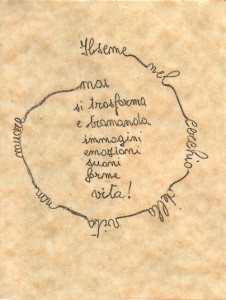 Il seme nel cerchio della vita non muore
mai
si trasforma
e tramanda
immagini
emozioni
suoni
forme
vita!